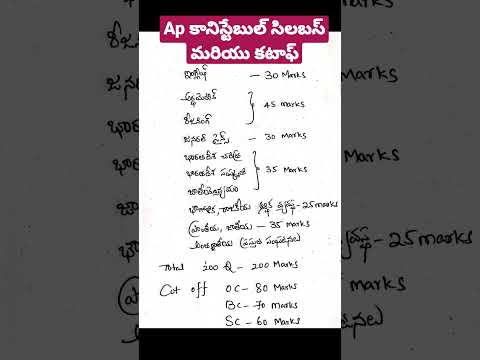 Ap కానిస్టేబుల్ సిలబస్
మరియు కటాఫ్
ఇంగ్లీష్ - 30 Marks
అర్థమెటిక్
45 marks
రీజనింగ్
జనరల్ సైన్స్ - 30 Marks
భారతదేశ చరిత్ర
భారతదేశ సంస్కృతి
35 Marks
జాతీయోద్యమం
భౌగోళిక, రాజకీయ వ్యవస్థ - 25 marks
ప్రాంతీయ, జాతీయ - 35 Marks
అంతర్జాతీయ ప్రస్తుత సంఘటనలు
Total 200 Q - 200 Marks
Cut off OC - 80 Marks
BC - 70 Marks
SC - 60 Marks